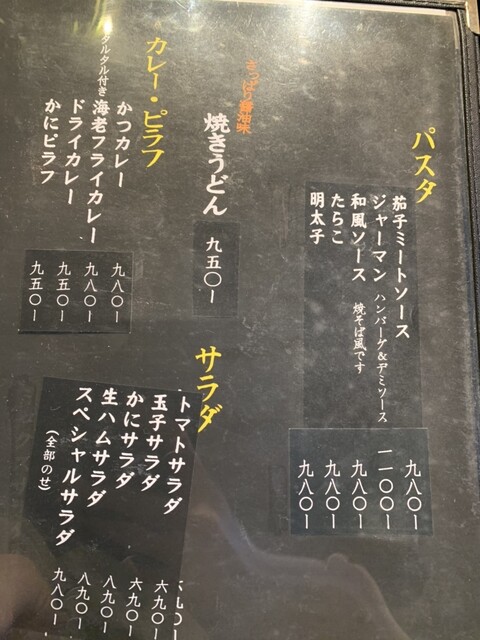 パスタ
茄子ミートソース 九八〇ー
ジャーマン ハンバーグ&デミソース 一一〇〇ー
和風ソース 焼そば風です 九八〇ー
たらこ 九八〇ー
明太子 九八〇ー
さっぱり醤油味
焼きうどん 九五〇ー
カレー・ピラフ
かつカレー 九八〇ー
タルタル付き
海老フライカレー 九八〇ー
ドライカレー 九五〇ー
かにピラフ 九五〇ー
サラダ
トマトサラダ 六九〇ー
玉子サラダ 六九〇ー
かにサラダ 六九〇ー
生ハムサラダ 八九〇ー
スペシャルサラダ 九八〇ー
(全部のせ)